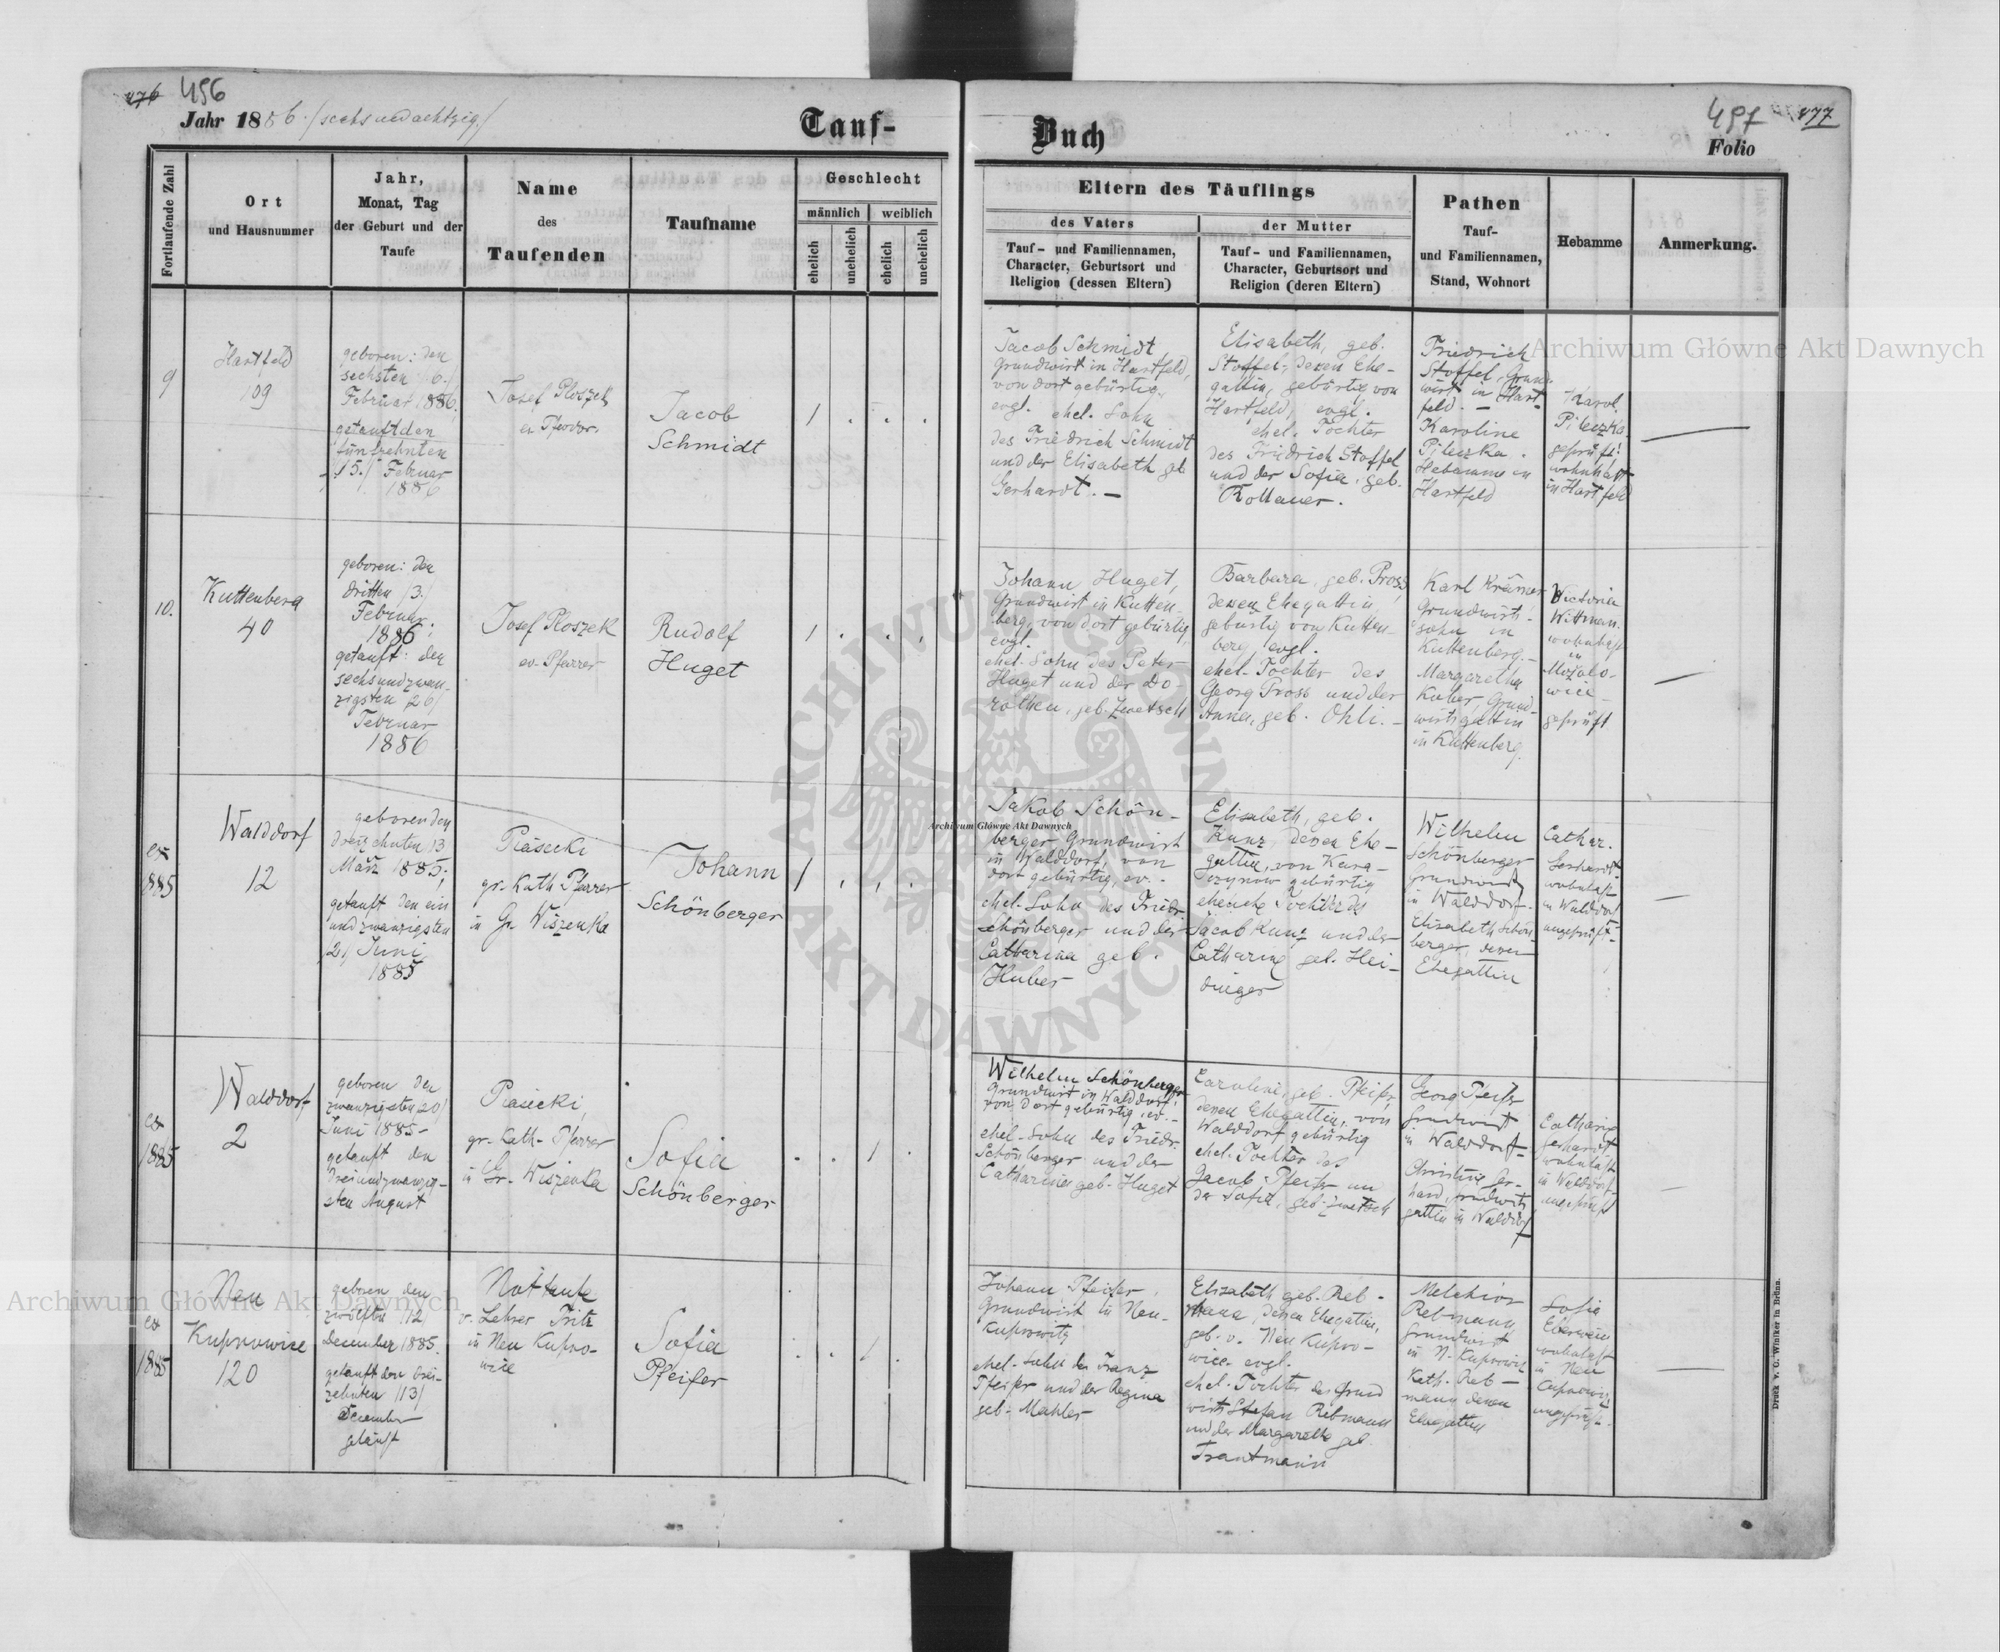 476 456
Jahr 1886. /sechsundachtzig/
Tauf-
Buch
457 477
Folio
Fortlaufende Zahl
Ort
und Hausnummer
Jahr,
Monat, Tag
der Geburt und der
Taufe
Name
des
Taufenden
Taufname
Geschlecht
männlich
weiblich
ehelich
unehelich
ehelich
unehelich
Eltern des Täuflings
des Vaters
Tauf- und Familiennamen,
Character, Geburtsort und
Religion (dessen Eltern)
der Mutter
Tauf- und Familiennamen,
Character, Geburtsort und
Religion (deren Eltern)
Pathen
Tauf-
und Familiennamen,
Stand, Wohnort
Hebamme
Anmerkung.
9
Hartfeld
109
geboren: den
sechsten /6./
Februar 1886.
getauft den
fünfzehnten
/15./ Februar
1886
Josef Ploszek
ev. Pfarrer
Jacob
Schmidt
1
Jacob Schmidt
Grundwirt in Hartfeld,
von dort gebürtig,
evgl. ehel. Sohn
des Friedrich Schmidt
und der Elisabeth geb.
Gerhardt. —
Elisabeth, geb.
Stoffel, deren Ehe-
gattin, gebürtig von
Hartfeld, evgl.
ehel. Tochter
des Friedrich Stoffel
und der Sofia, geb.
Rollauer.
Friedrich
Stoffel, Grund-
wirt in Hart-
feld. —
Karoline
Pileczka.
Hebamme in
Hartfeld
Karol.
Pileczka.
geprüft!
wohnhaft
in Hartfeld
10.
Kuttenberg
40
geboren: den
dritten /3./
Februar
1886;
getauft: den
sechsundzwan-
zigsten /26/
Februar
1886
Josef Ploszek
ev. Pfarrer
Rudolf
Huget
1
Johann Huget,
Grundwirt in Kutten-
berg, von dort gebürtig,
evgl.
ehel. Sohn des Peter
Huget und der Do-
rothea, geb. Zwetsch
Barbara, geb. Pross,
dessen Ehegattin,
gebürtig von Kutten-
berg, evgl.
ehel. Tochter des
Georg Pross und der
Anna, geb. Ohli. —
Karl Krämer
Grundwirts-
sohn in
Kuttenberg. —
Margaretha
Kuber, Grund-
wirtsgattin
in Kuttenberg.
Victoria
Wittman.
wohnhaft
in
Mużało-
wice —
geprüft
ex
1885
Walddorf
12
geboren den
dreizehnten /13
März 1885;
getauft den ein
und zwanzigsten
/21/ Juni
1885
Piasecki
gr. Kath. Pfarrer
in Gr. Wiszenka
Johann
Schönberger
1
Jakob Schön-
berger, Grundwirt
in Walddorf, von
dort gebürtig, ev. -
ehel. Sohn des Friedr.
Schönberger und der
Catharina geb.
Huber
Elisabeth, geb.
Kunz, deren Ehe-
gattin, von Kara-
czynow gebürtig
eheliche Tochter des
Jacob Kunz und der
Catharine geb. Hei-
dinger
Wilhelm
Schönberger
Grundwirt
in Walddorf.
Elisabeth Schön-
berger, deren
Ehegattin
Cathar.
Gerhardt
wohnhaft
in Walddorf
ungeprüft
ex
1885
Walddorf
2
geboren den
zwanzigsten /20/
Juni 1885 -
getauft den
dreiundzwanzig-
sten August
Piasecki,
gr. Kath. Pfarrer
in Gr. Wiszenka
Sofia
Schönberger
1
Wilhelm Schönberger
Grundwirt in Walddorf,
von dort gebürtig, ev. -
ehel. Sohn des Friedr.
Schönberger und der
Catharina geb. Huget
Caroline, geb. Pfeifer,
deren Ehegattin, von
Walddorf gebürtig
ehel. Tochter des
Jacob Pfeifer un
der Sofia, geb. Zwetsch
Georg Pfeifer
Grundwirt
in Walddorf -
Christine Ger-
hard, Grundwirts
gattin in Walddorf
Catharina
Gerhardt
wohnhaft
in Walddorf
ungeprüft
ex
1885
Neu
Kuprowice
120
geboren den
zwölften /12/
December 1885.
getauft den drei-
zehnten /13/
December
getauft
Nottaufe
v. Lehrer Fritz
in Neu Kupro-
wice
Sofia
Pfeifer
1
Johann Pfeifer,
Grundwirt in Neu-
Kuprowitz
ehel. Sohn des Franz
Pfeifer und der Regina
geb. Mahler
Elisabeth geb. Reb-
mann, deren Ehegattin,
geb. v. Neu Kupro-
wice. evgl.
ehel. Tochter des Grund
wirts Stefan Rebmann
und der Margarethe geb.
Trautmann
Melchior
Rebmann,
Grundwirt
in N. Kuprowice
Kath. Reb-
mann deren
Ehegattin
Sofia
Eberwein
wohnhaft
in Neu
Cuprowice
ungeprüft.
Druck v. C. Winiker in Brünn.
Archiwum Główne Akt Dawnych
Archiwum Główne Akt Dawnych
Archiwum Główne Akt Dawnych
ARCHIWUM GŁÓWNE AKT DAWNYCH